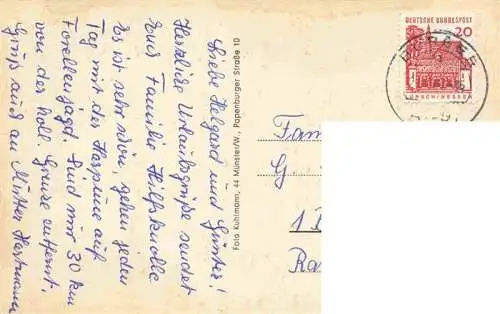 Liebe Helgard und Günter!
Herzliche Urlaubsgrüße sendet
Euch Familie Hilfsknolle
Es ist sehr schön, gehen jeden
Tag mit der Harpune auf
Forellenjagd. Sind nur 30 km
von der holl. Grenze entfernt.
Gruß auch an Mutter Hartmann
Foto Kuhlmann, 44 Münster/W., Papenburger Straße 10
DEUTSCHE BUNDESPOST
20
LORSCH/HESSEN
Fam
G
1
Ra